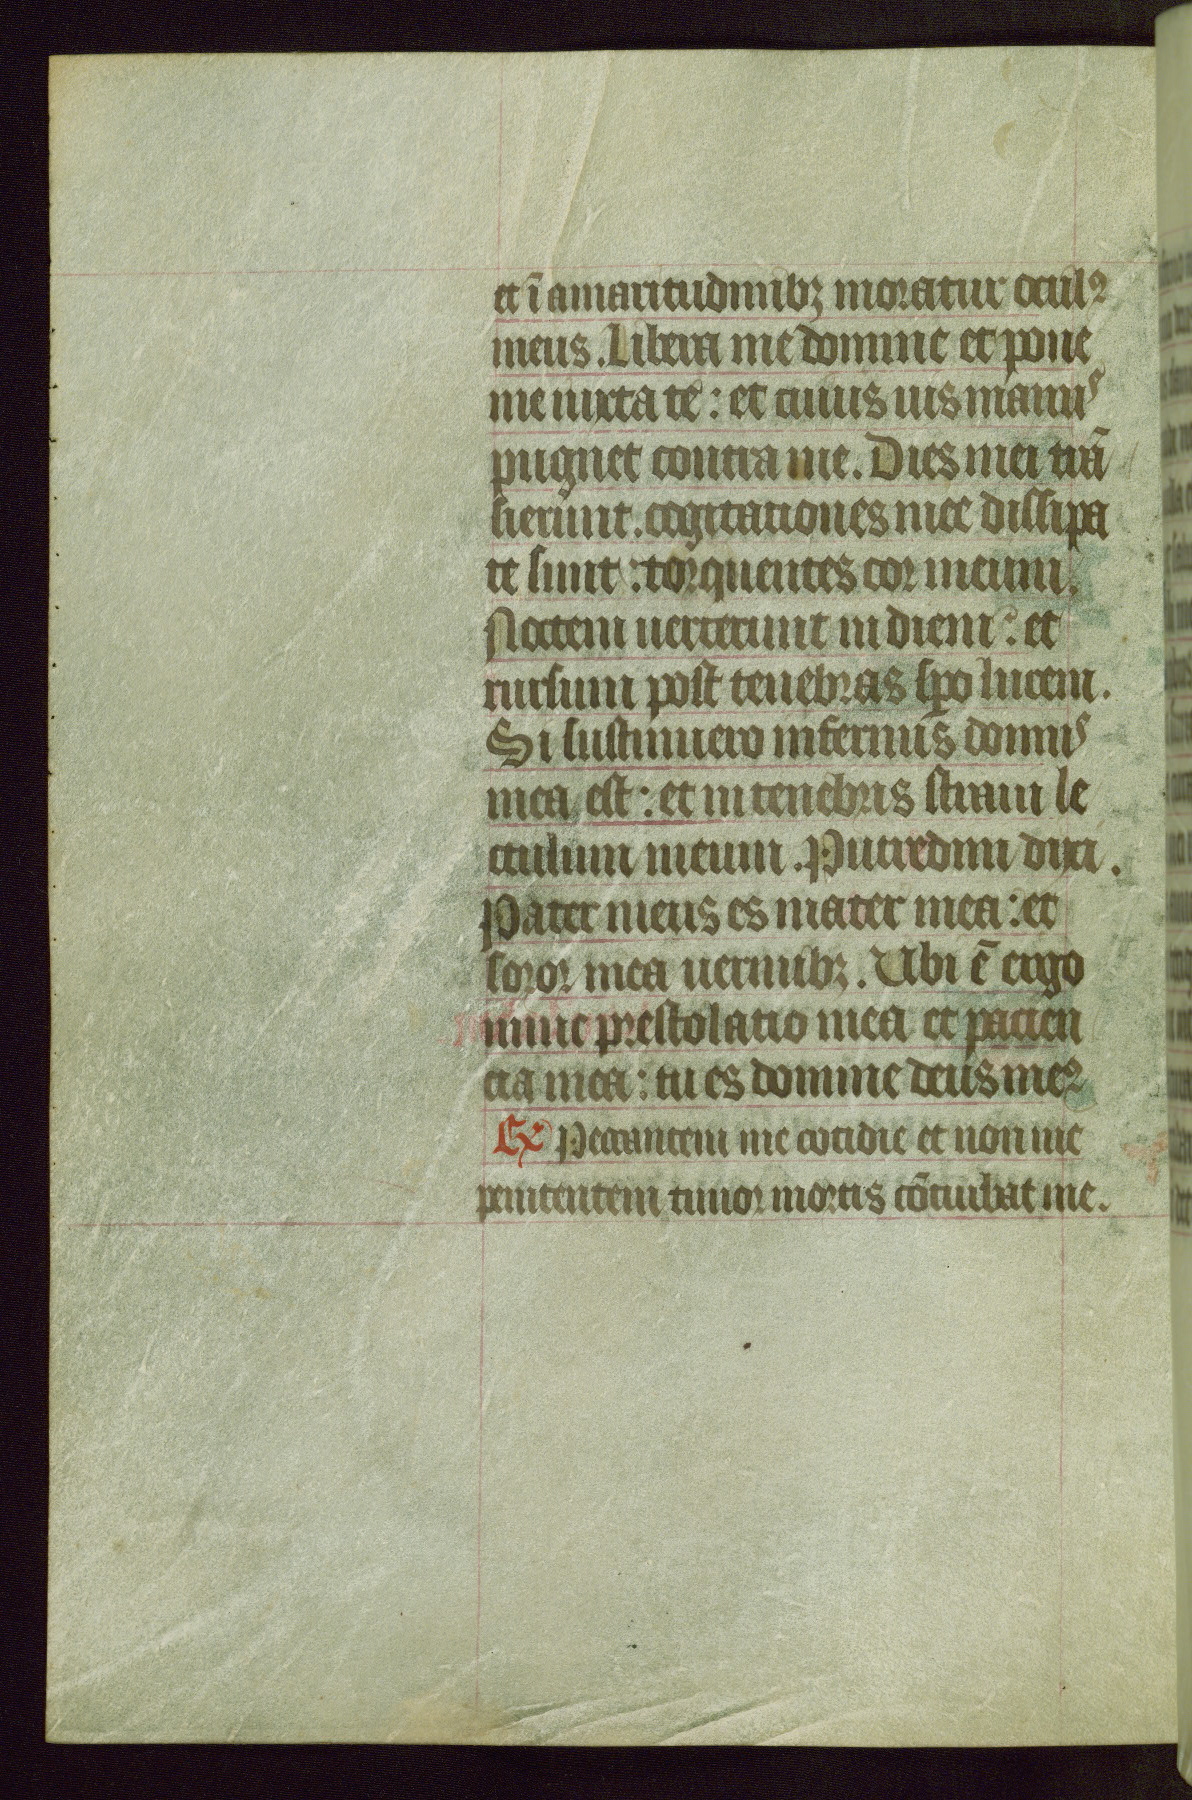 et ī amaritudinibꝫ moratur ocul᷒
meus. Libera me domine et pone
me iuxta te : et cuius uis manu᷒
pugnet contra me. Dies mei trā
sierunt. cogitationes mee dissipa
te sunt : torquentes cor meum.
Noctem uerterunt in diem : et
rursum post tenebras spo lucem.
Si sustinuero infernus domu᷒
mea est : et in tenebris straui le
ctulum meum. Putredini dixi.
Pater meus es mater mea : et
soror mea uermibꝫ. Ubi ē ergo
nunc prestolatio mea et pacien
cia mea : tu es domine deus me᷒
R Peccantem me cotidie et non me
penitentem timor mortis cōturbat me.